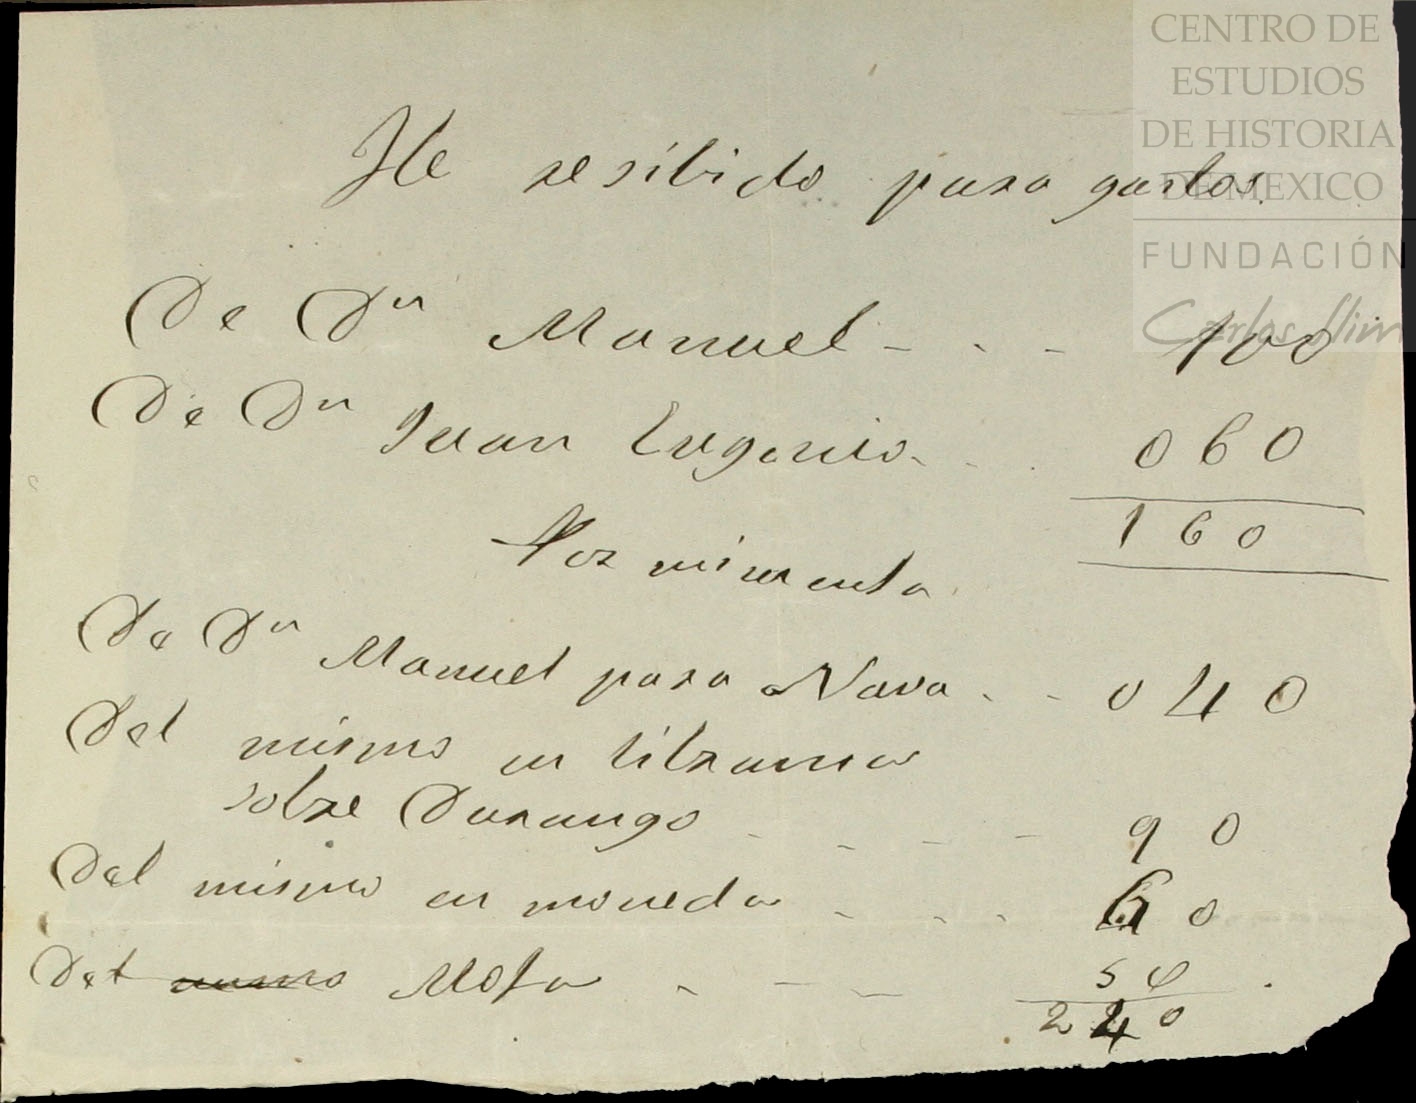 CENTRO DE
ESTUDIOS
DE HISTORIA
DE MEXICO
FUNDACIÓN
Carlos Slim
He resibido para gastos.
De Dn Manuel - - - 100
De Dn Juan Eugenio - - 060
160
Por mi cuenta
De Dn Manuel para Nava - - 040
Del mismo en libranza
sobre Durango - - - - 90
Del mismo en moneda - - - 60
Del mismo Mosa - - - 50
240